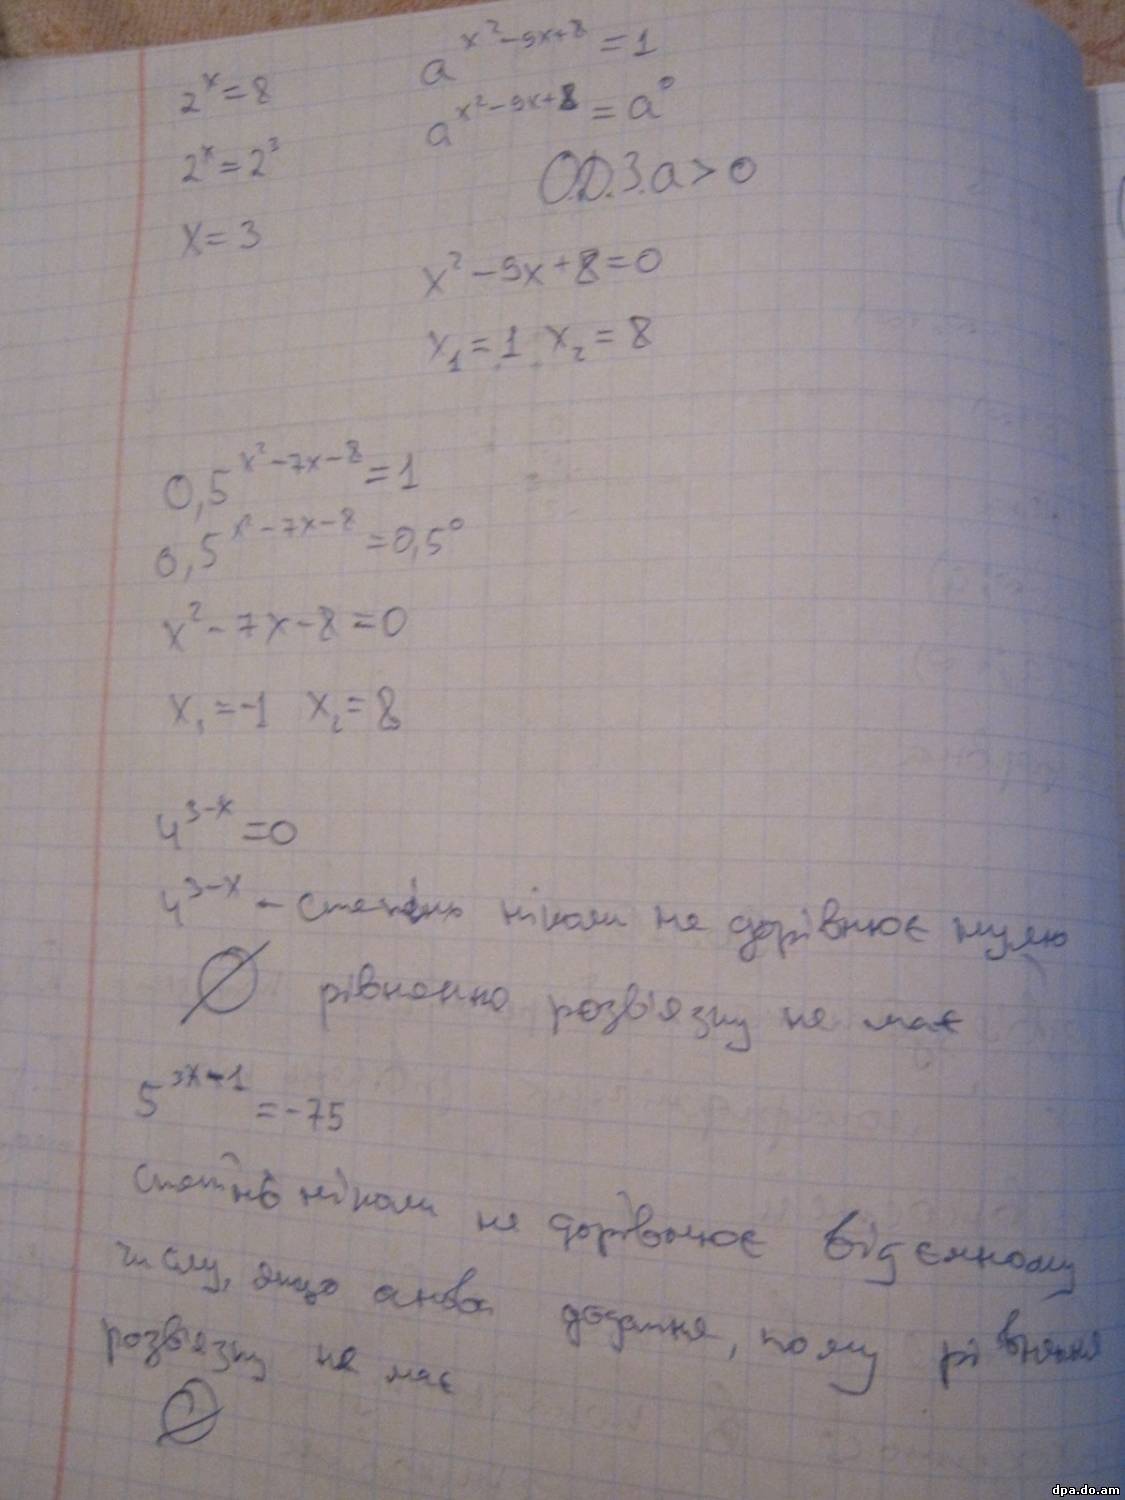 2^x = 8
2^x = 2^3
x = 3
a^(x^2-9x+8) = 1
a^(x^2-9x+8) = a^0
О.Д.З. a > 0
x^2 - 9x + 8 = 0
x_1 = 1 x_2 = 8
0,5^(x^2-7x-8) = 1
0,5^(x^2-7x-8) = 0,5^0
x^2 - 7x - 8 = 0
x_1 = -1 x_2 = 8
4^(3-x) = 0
4^(3-x) - степінь ніколи не дорівнює нулю
∅ рівняння розв'язку не має
= -75
степінь ніколи не дорівнює від'ємному
числу, якщо основа додатня, тому рівняння
розв'язку не має
∅
dpa.do.am